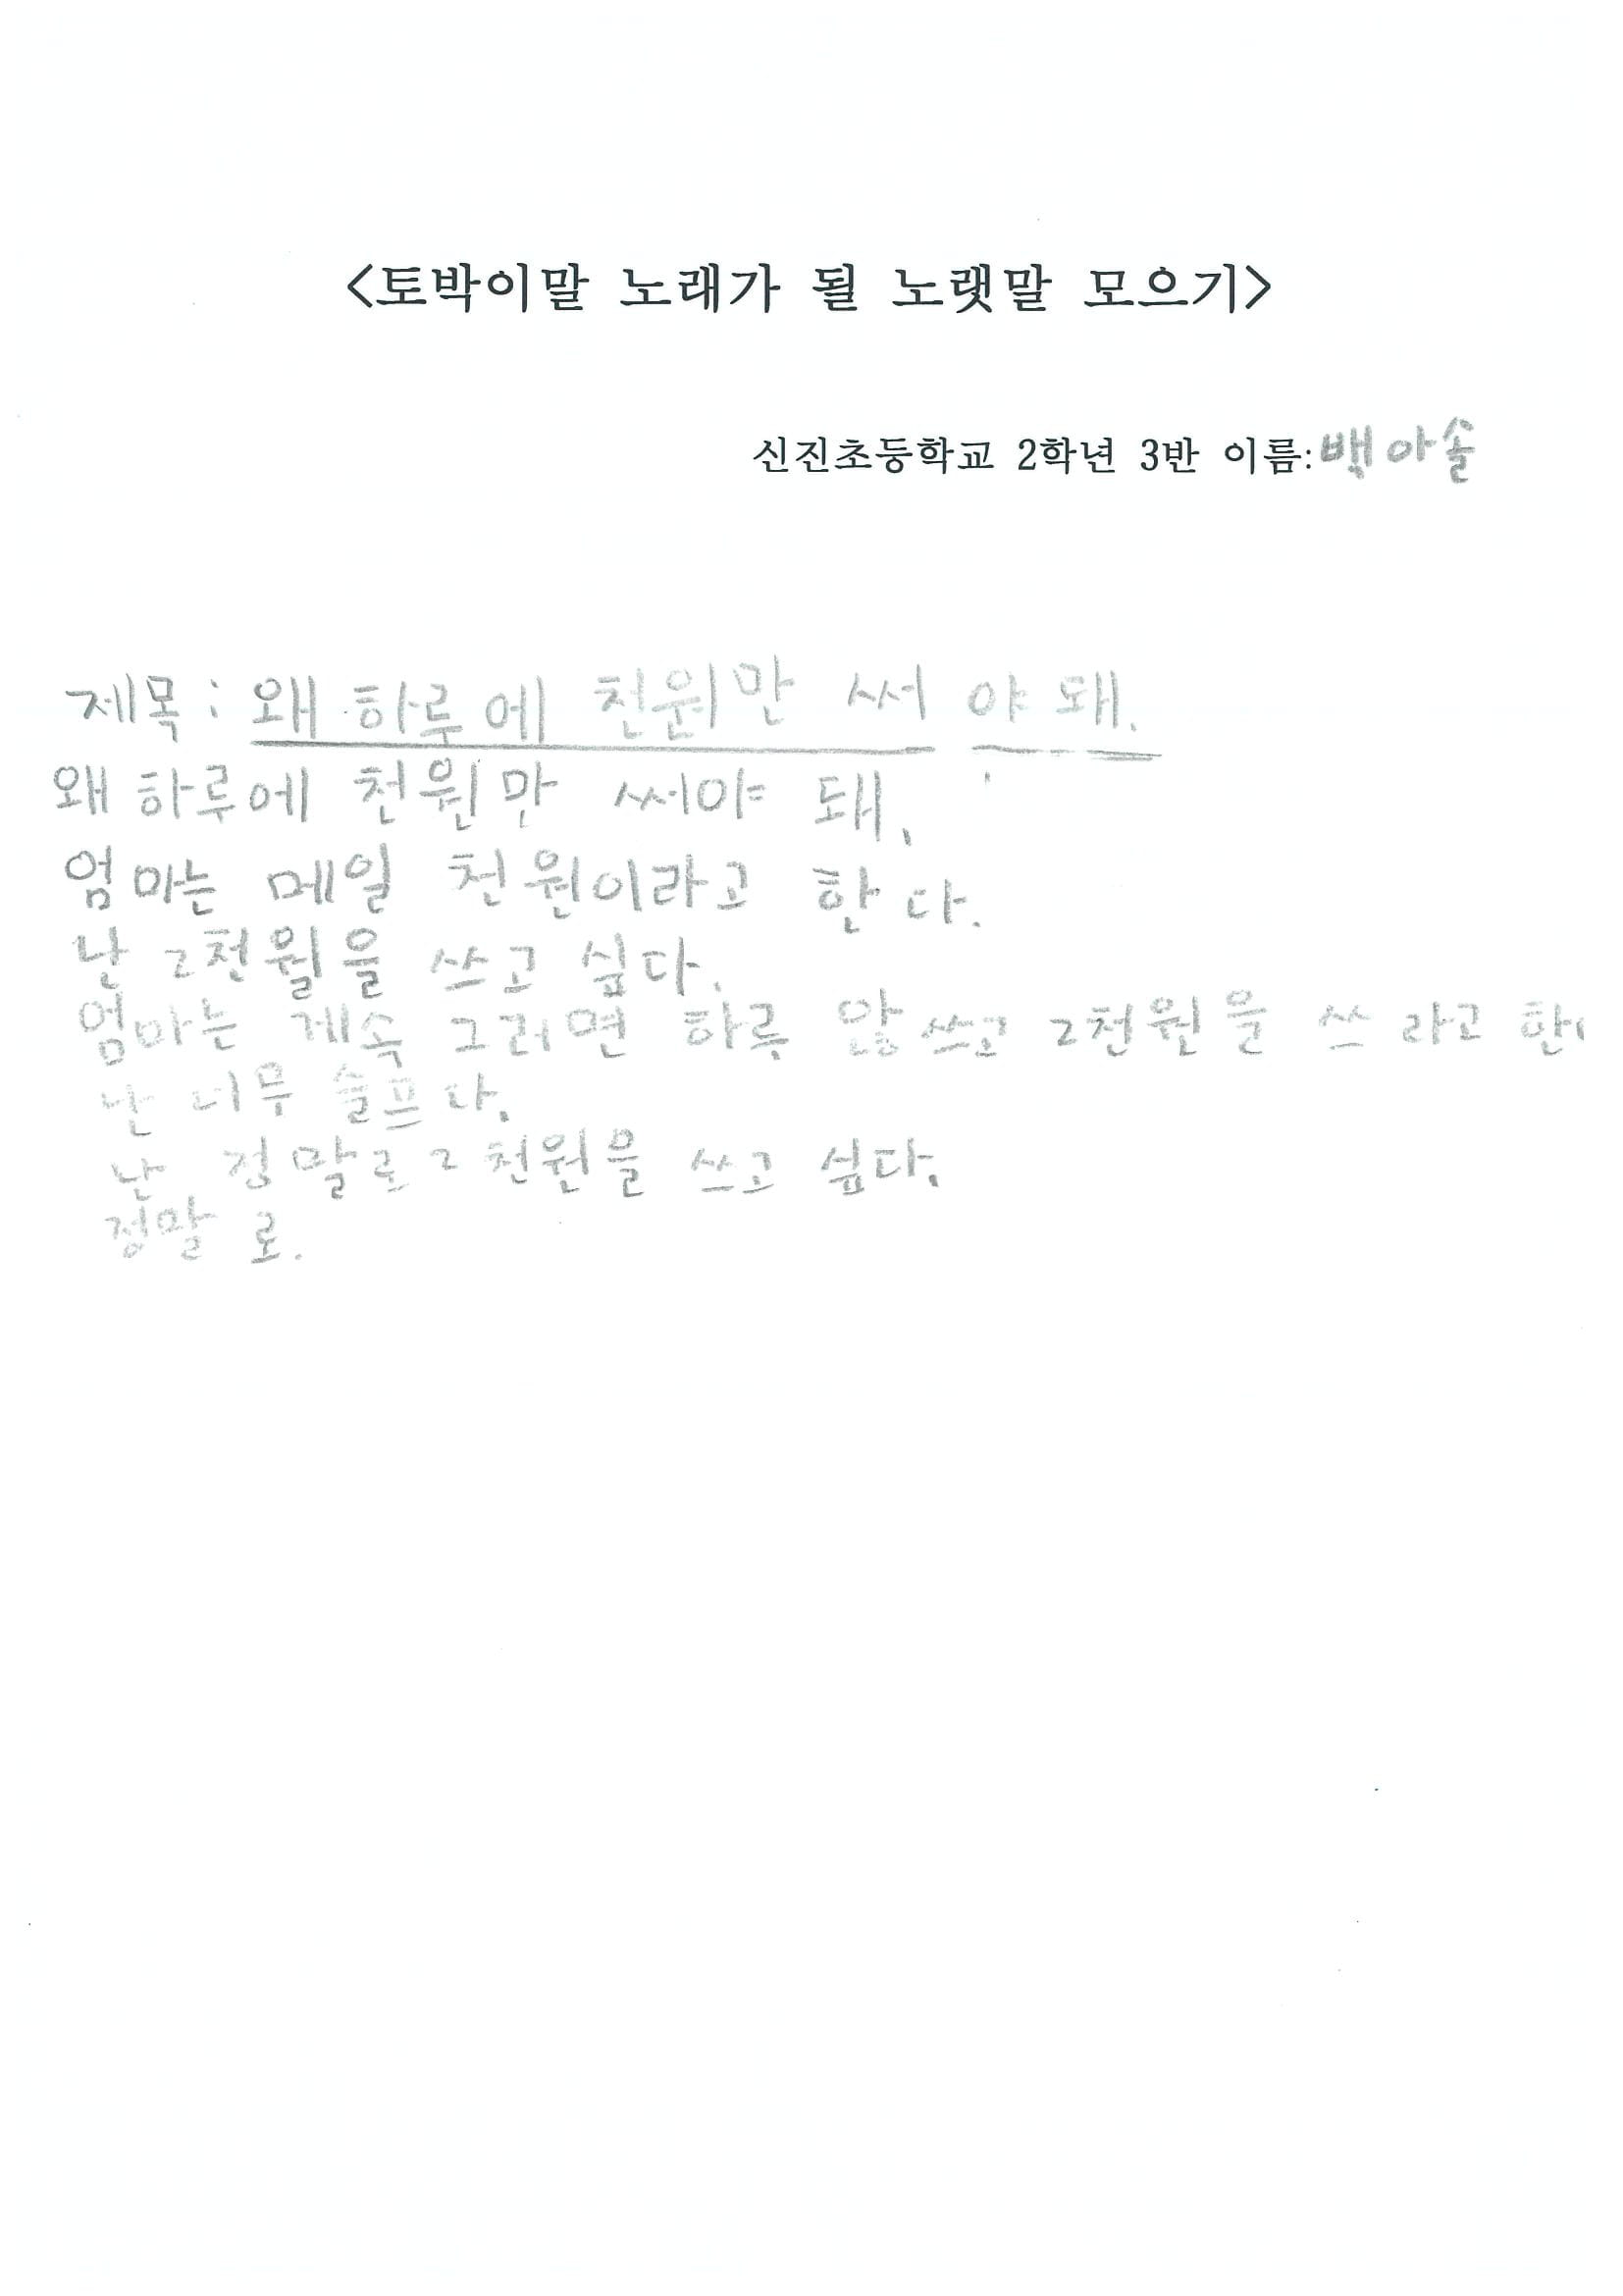 <토박이말 노래가 될 노랫말 모으기>
신진초등학교 2학년 3반 이름:백아솔
제목: 왜 하루에 천원만 써 야 돼.
왜 하루에 천원만 써야 돼.
엄마는 메일 천원이라고 한다.
난 2천월을 쓰고 싶다.
엄마는 게속 그러면 하루 않쓰고 2천원을 쓰라고 한
난 너무 슬프다.
난 정말로 2천원을 쓰고 싶다.
정말로.